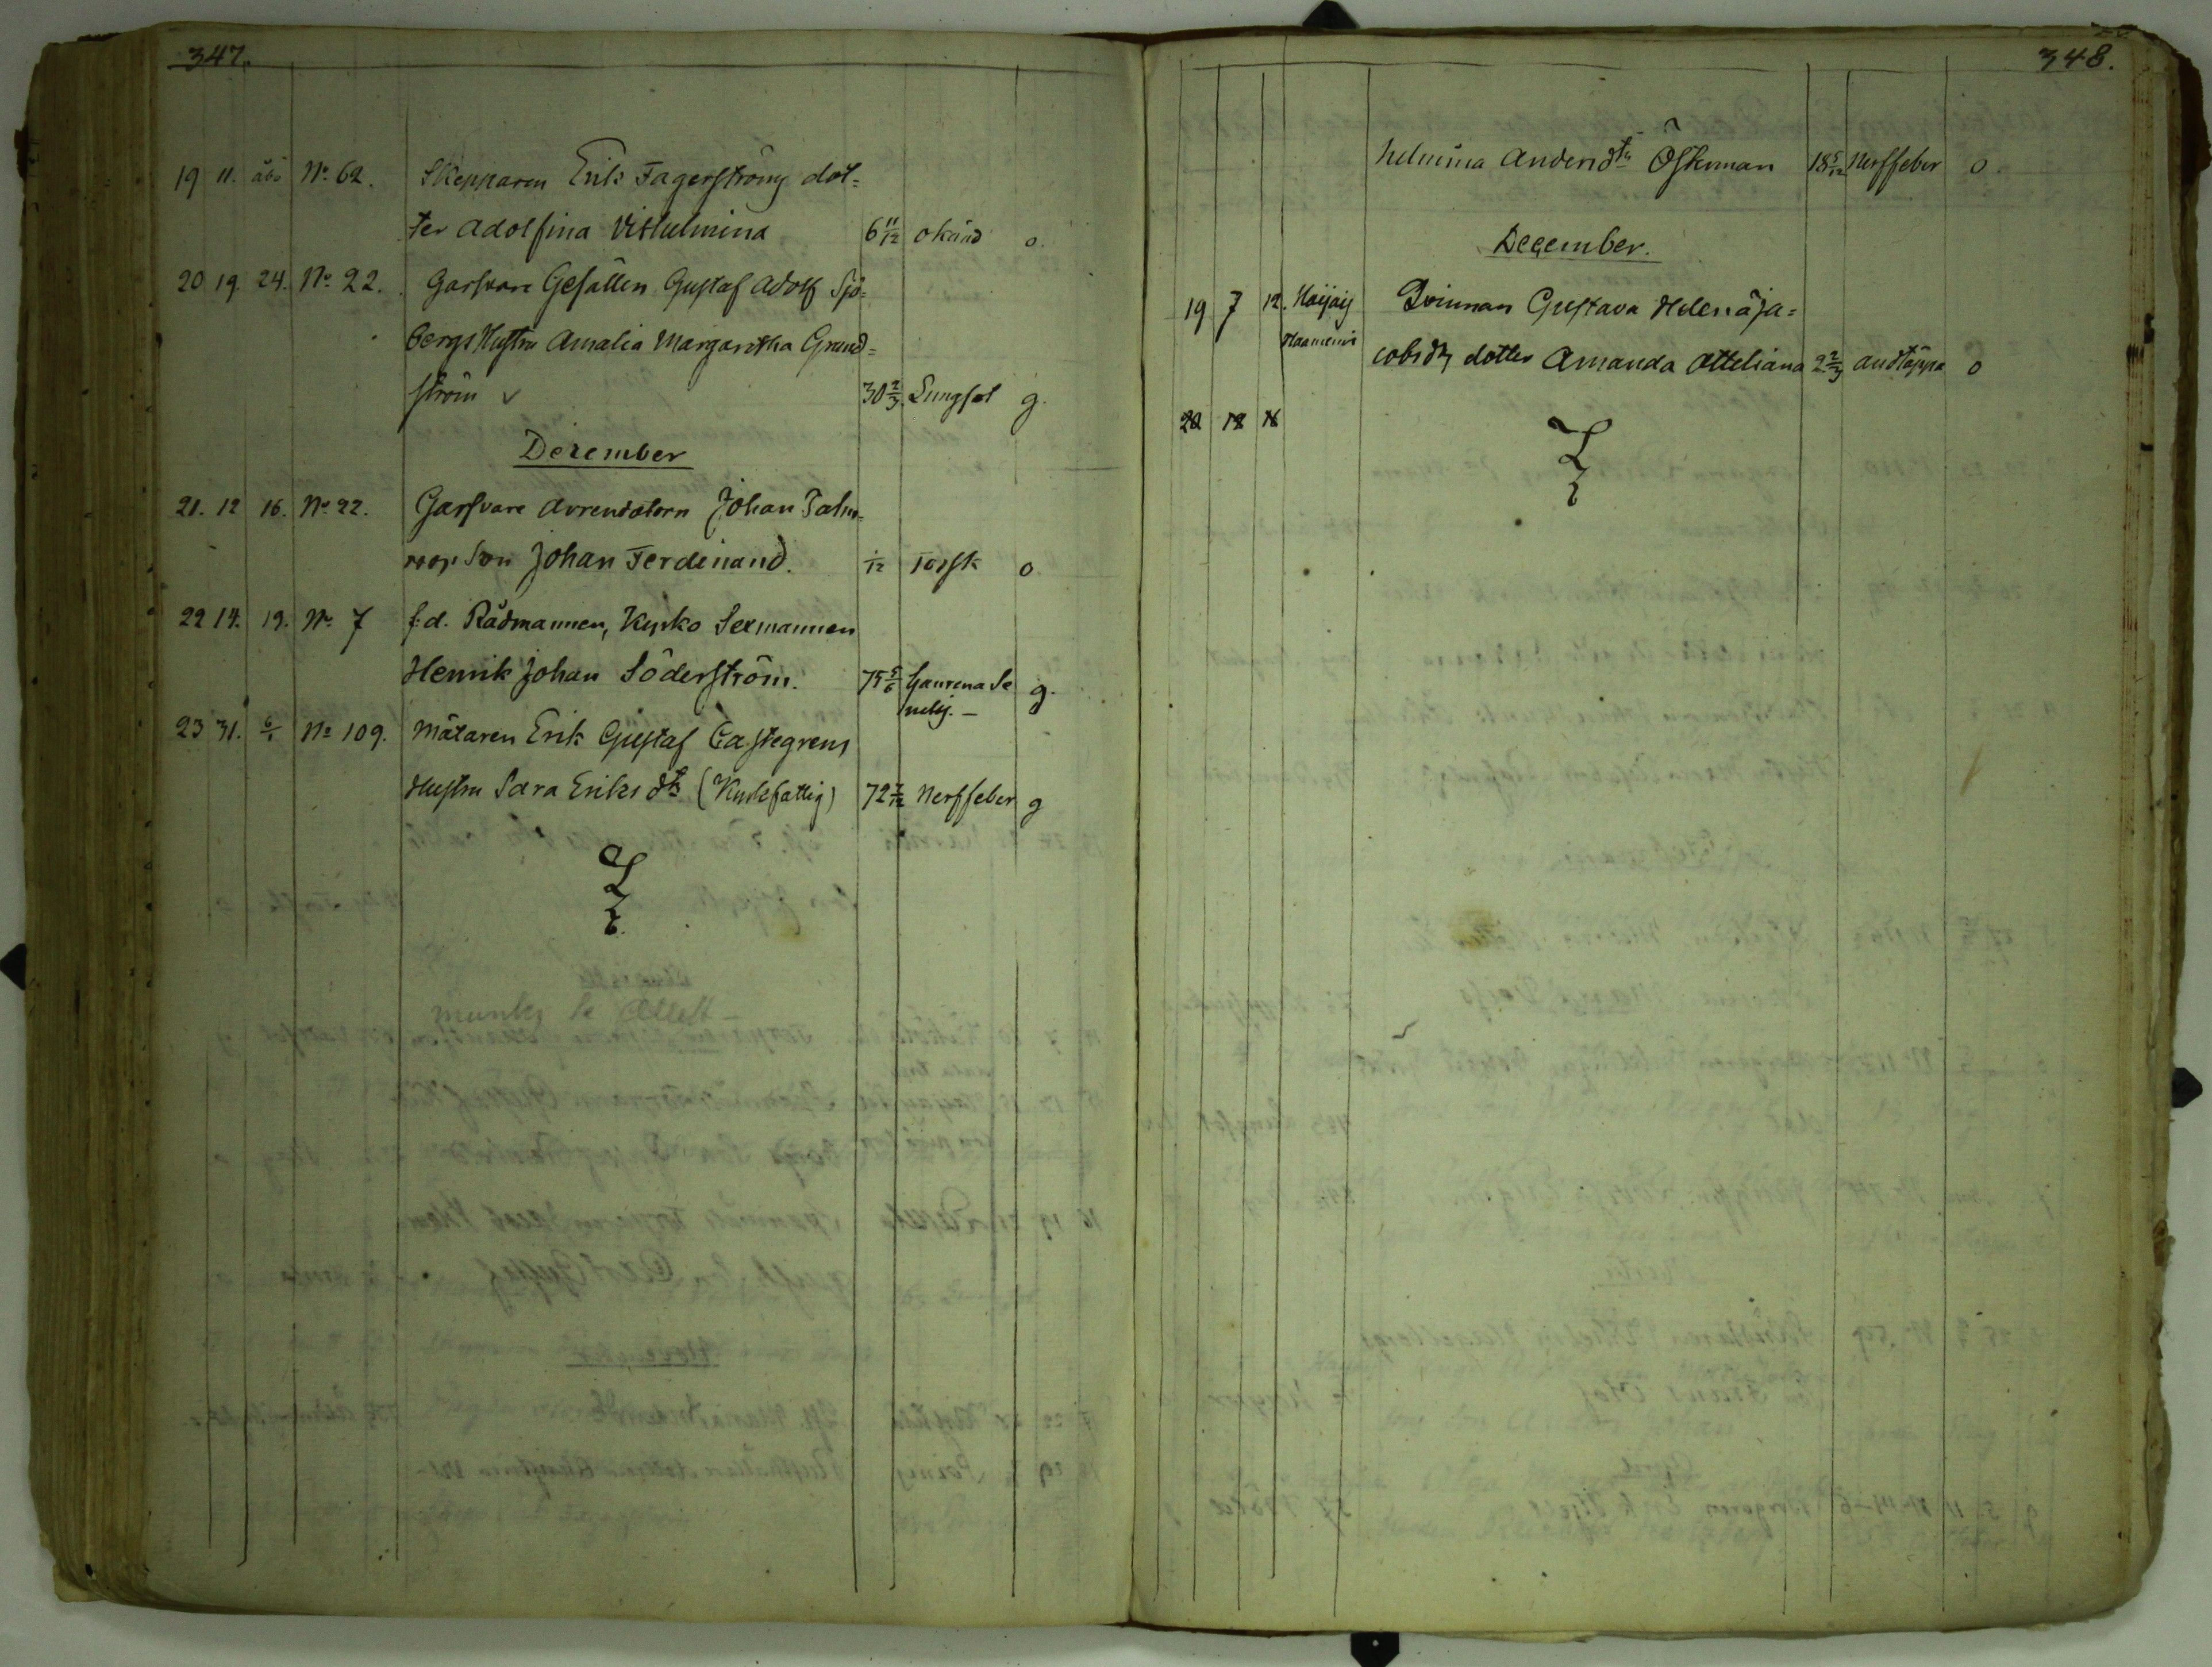 347.
19 11. åbo No 62. Skepparen Erik Fagerströms dot=
ter Adolfina Vilhelmina 6 11/12 okänd o.
20 19. 24. No 22. Garfvare Gesällen Gustaf Adolf Sjö=
bergs Hustru Amalia Margaretha Grund=
ström v 30 2/3. Lungsot g.
December
21. 12 16. No 22. Garfvare Arrendatorn Johan
Son Johan Ferdinand. 1/12 Torsk o
22 14. 19. No 7 f.d. Rådmannen, Kyrko Sexmannen
Henrik Johan Söderström. 75 5/6 g.
23 31. 6/1 No 109. Mätaren Erik Gustaf Castegrens
Hustru Sara Eriks dtr (Kyrkfattig) 72 7/12 Nerffeber g
348.
helmina Anders dtr Österman 18 5/12 Nerffeber o.
December.
19 7 12. Haijais Qvinnan Gustava Helena Ja=
Haamenvi cobs dtr dotter Amanda Otteliana 2 2/3 andtäppa o
20 18